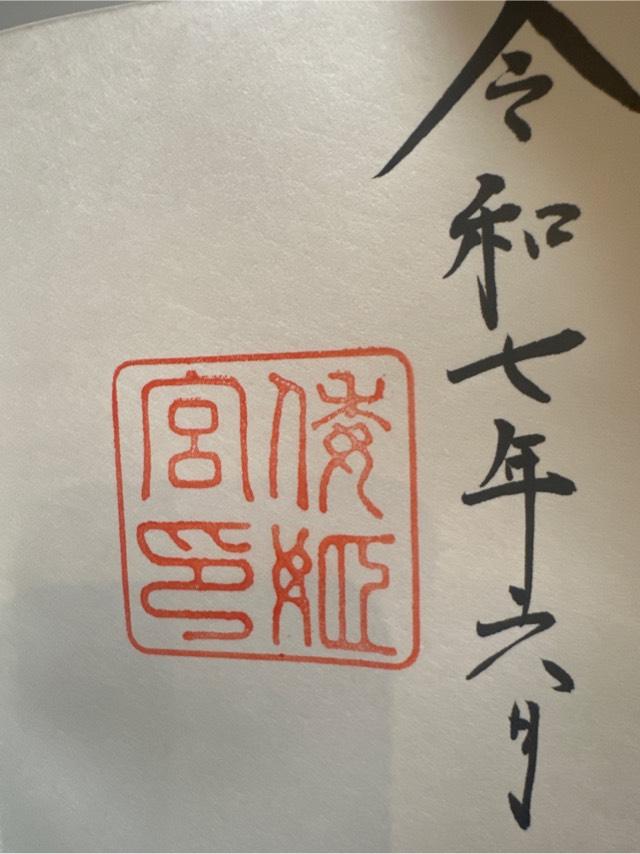 令和七年六月
倭姫
宮印